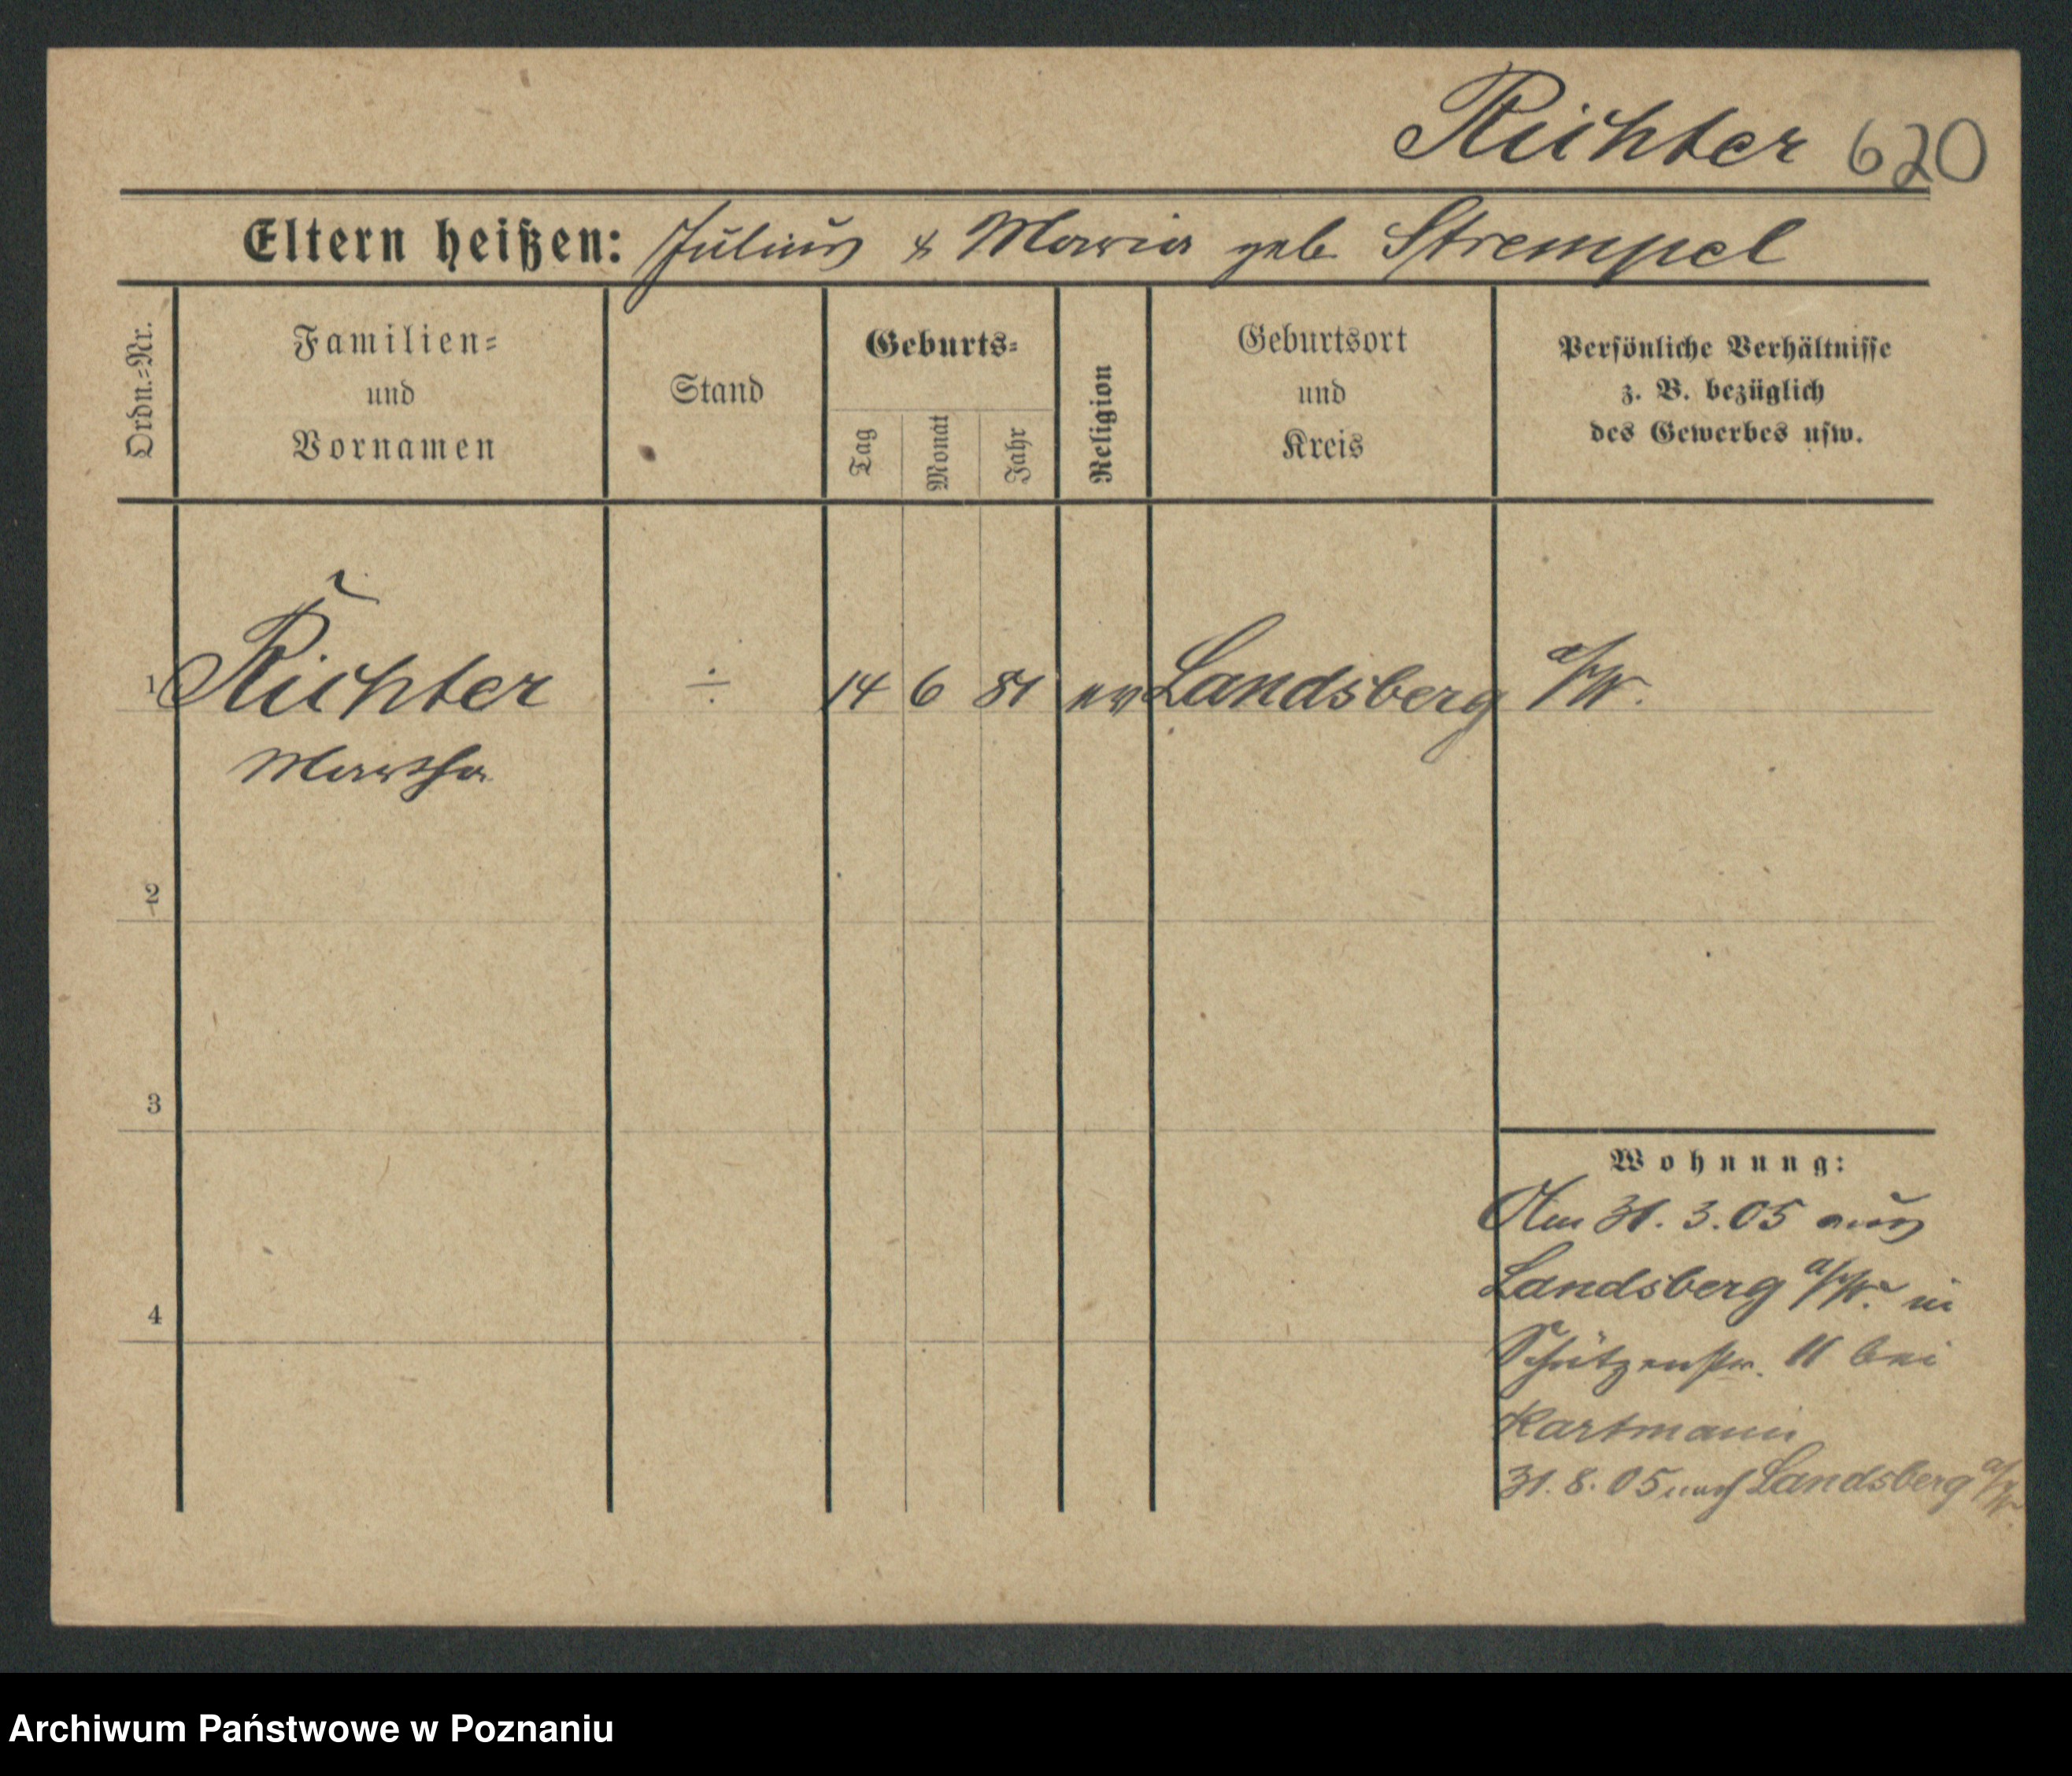 Richter 620
Eltern heißen: Julius & Maria geb. Strempel
Ordn.-Nr.
Familien-
und
Vornamen
Stand
Geburts-
Tag
Monat
Jahr
Religion
Geburtsort
und
Kreis
Persönliche Verhältnisse
z. B. bezüglich
des Gewerbes usw.
1 Richter ÷ 14 6 81 ev Landsberg a/W.
Martha
2
3
4
Wohnung:
Am 31. 3. 05 aus
Landsberg a/W. in
Schützenstr. 11 bei
Kartmann
31. 8. 05 nach Landsberg a/W.
Archiwum Państwowe w Poznaniu